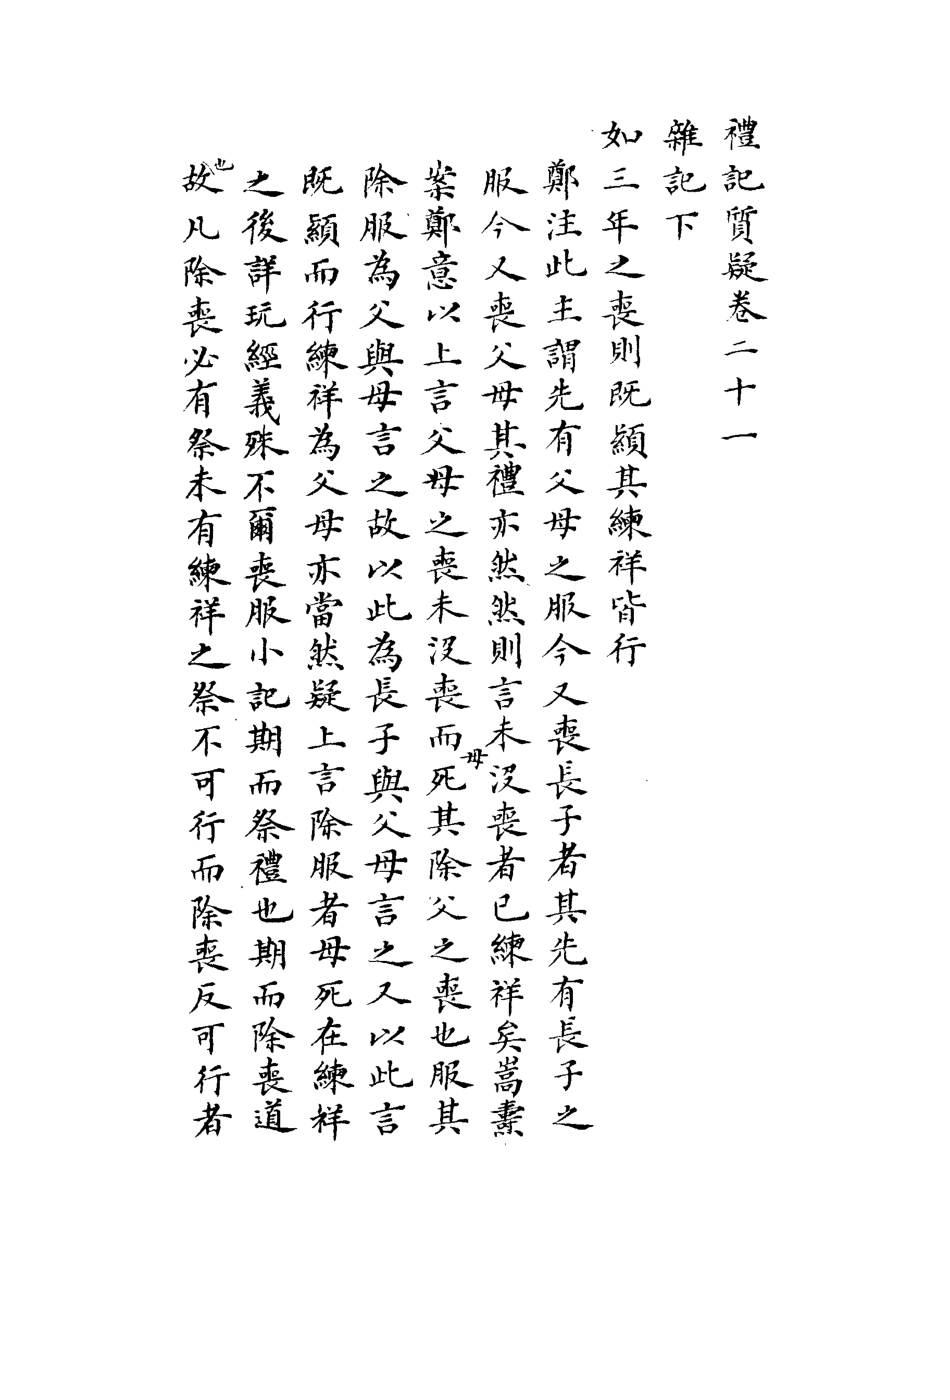 禮記質疑卷二十一
雜記下
如三年之喪則既顈其練祥皆行
鄭注此主謂先有父母之服今又喪長子者其先有長子之
服今又喪父母其禮亦然然則言未沒喪者已練祥矣嵩燾
案鄭意以上言父母之喪未沒喪而母死其除父之喪也服其
除服為父與母言之故以此為長子與父母言之又以此言
既顈而行練祥為父母亦當然疑上言除服者母死在練祥
之後詳玩經義殊不爾喪服小記期而祭禮也期而除喪道
也故凡除喪必有祭未有練祥之祭不可行而除喪反可行者